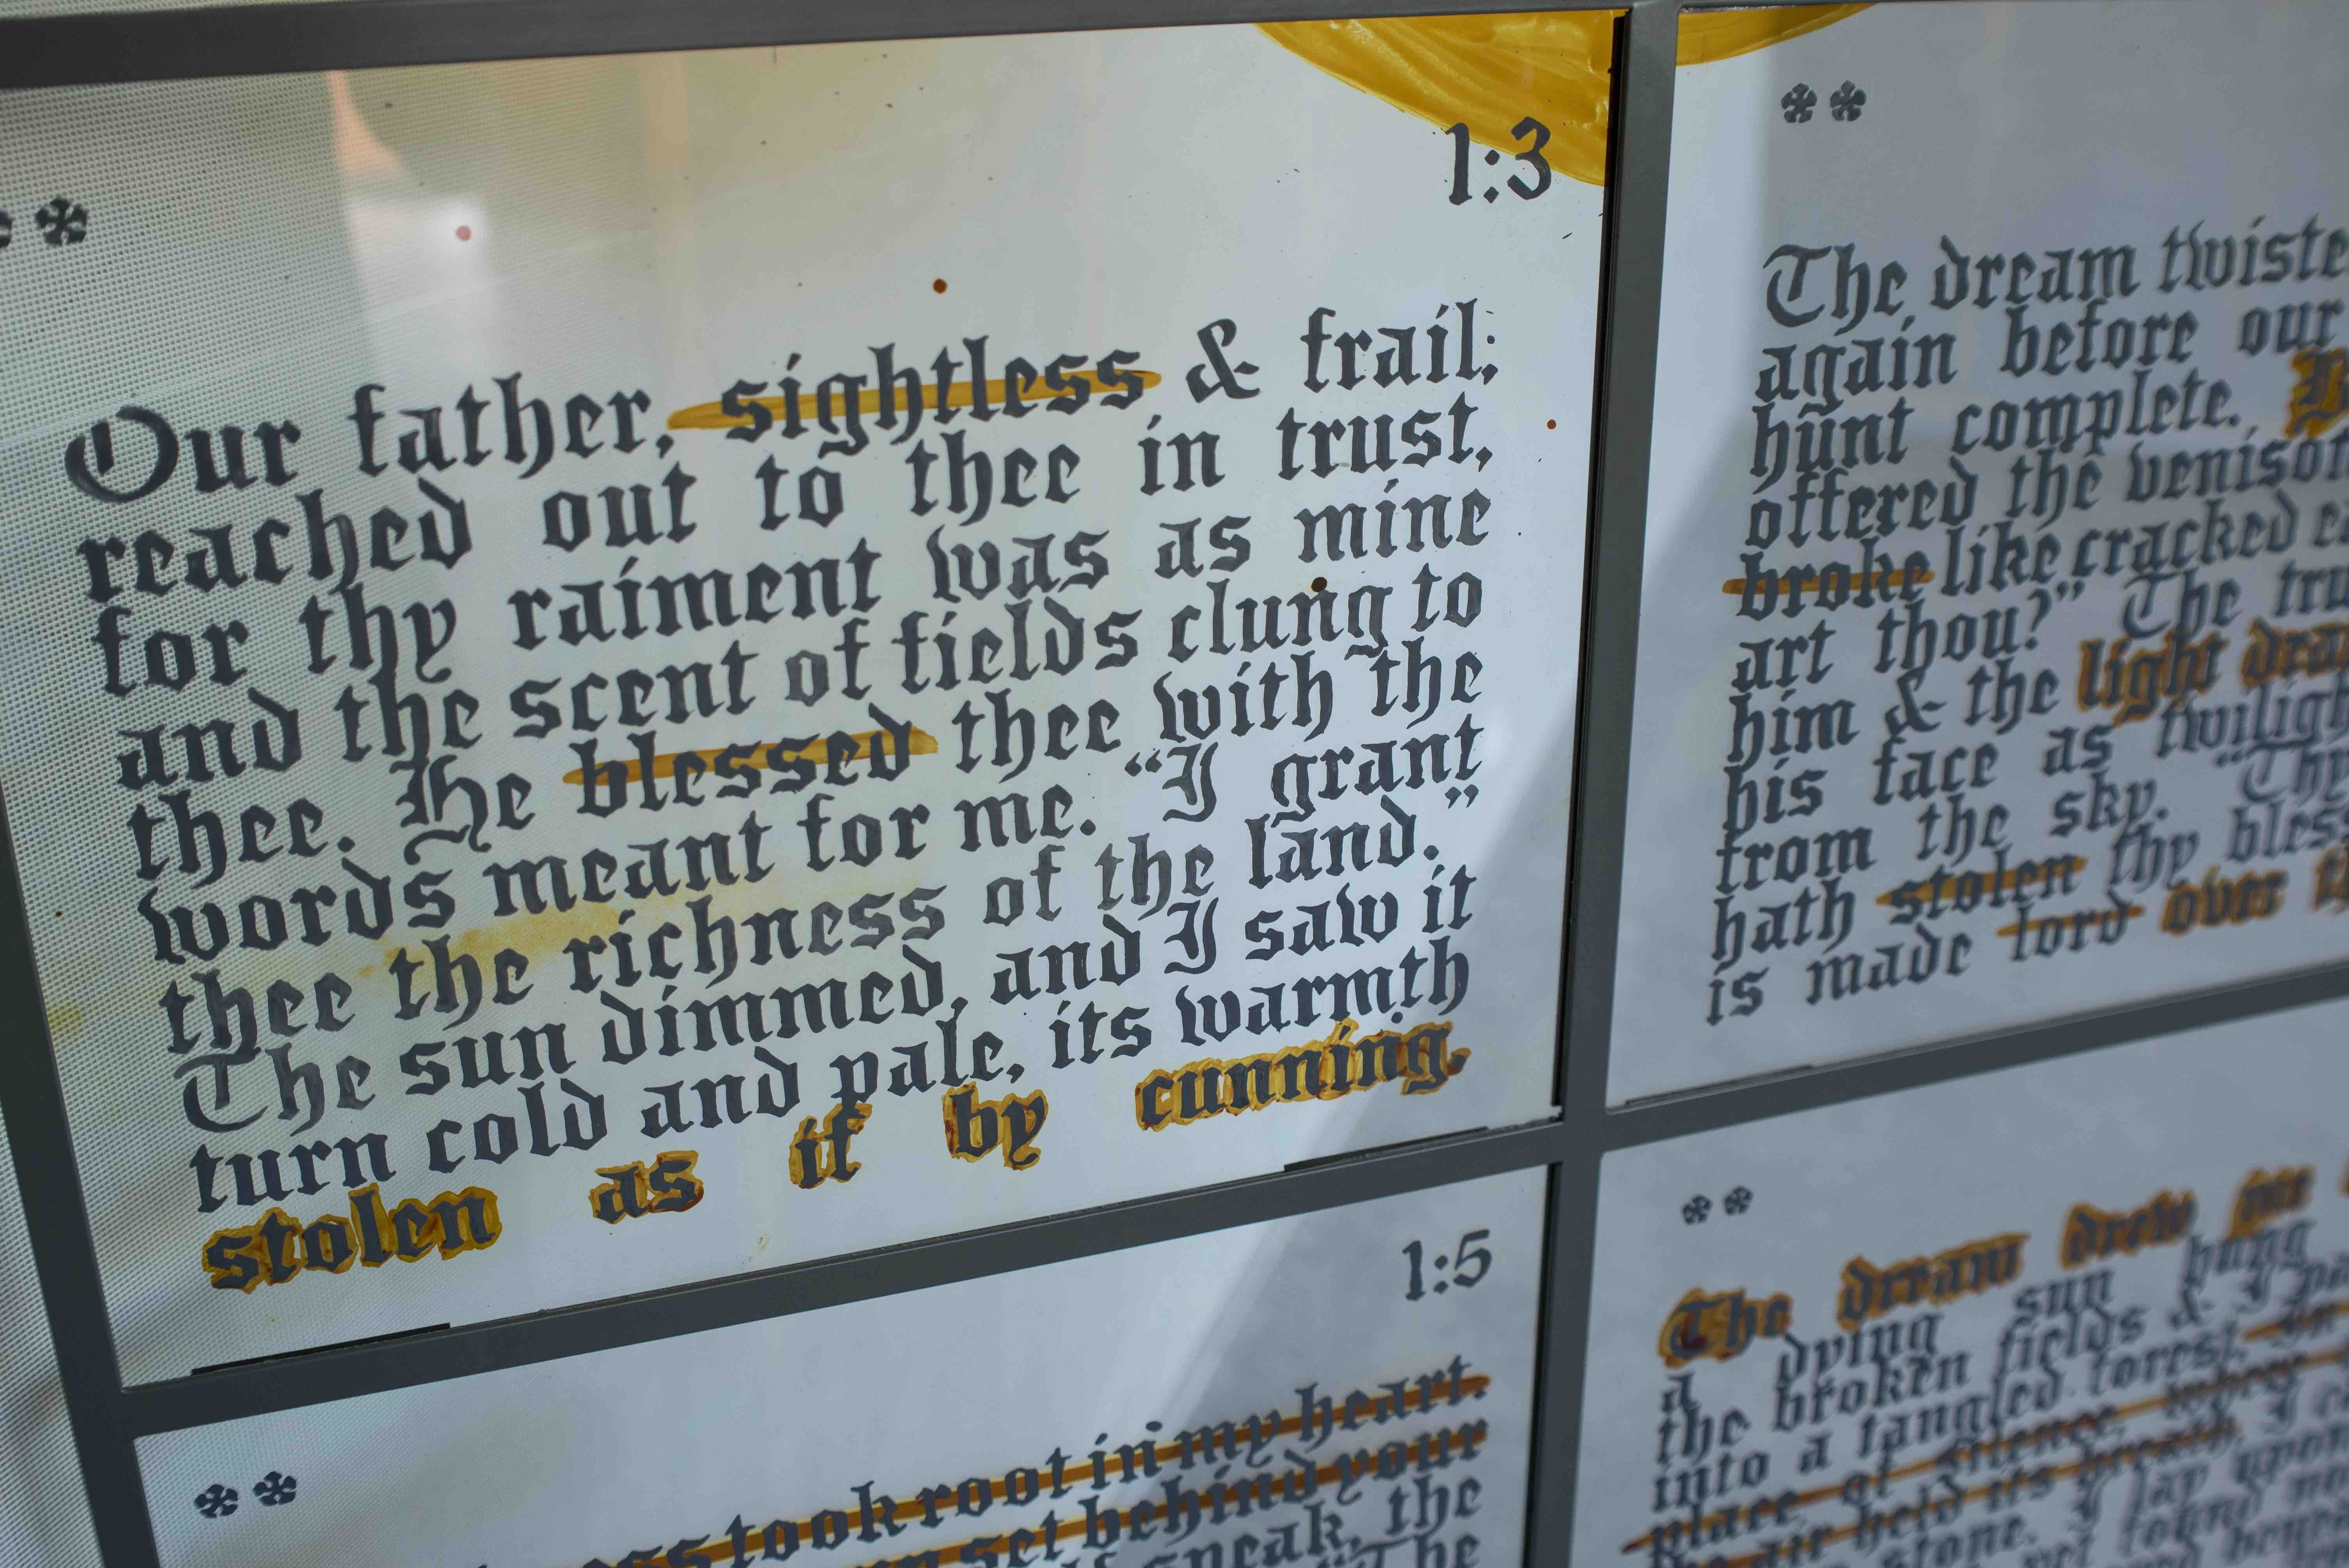 1:3
Our father, sightless & frail;
reached out to thee in trust,
for thy raiment was as mine
and the scent of fields clung to
thee. He blessed thee with the
words meant for me. “I grant
thee the richness of the land.”
The sun dimmed, and I saw it
turn cold and pale, its warmth
stolen as if by cunning.
The dream twiste
again before our
hunt complete.
offered the venison
broke like cracked
art thou?” The tru
him & the light dra
his face as twiligh
from the sky. “Thy
hath stolen thy bles
is made lord over
1:5
took root in my heart.
set behind your
speak, the
The dream drew me
a dying sun hung
the broken fields & I pa
into a tangled forest.
place of silence, where
held its breath. I
stone. I lay upon